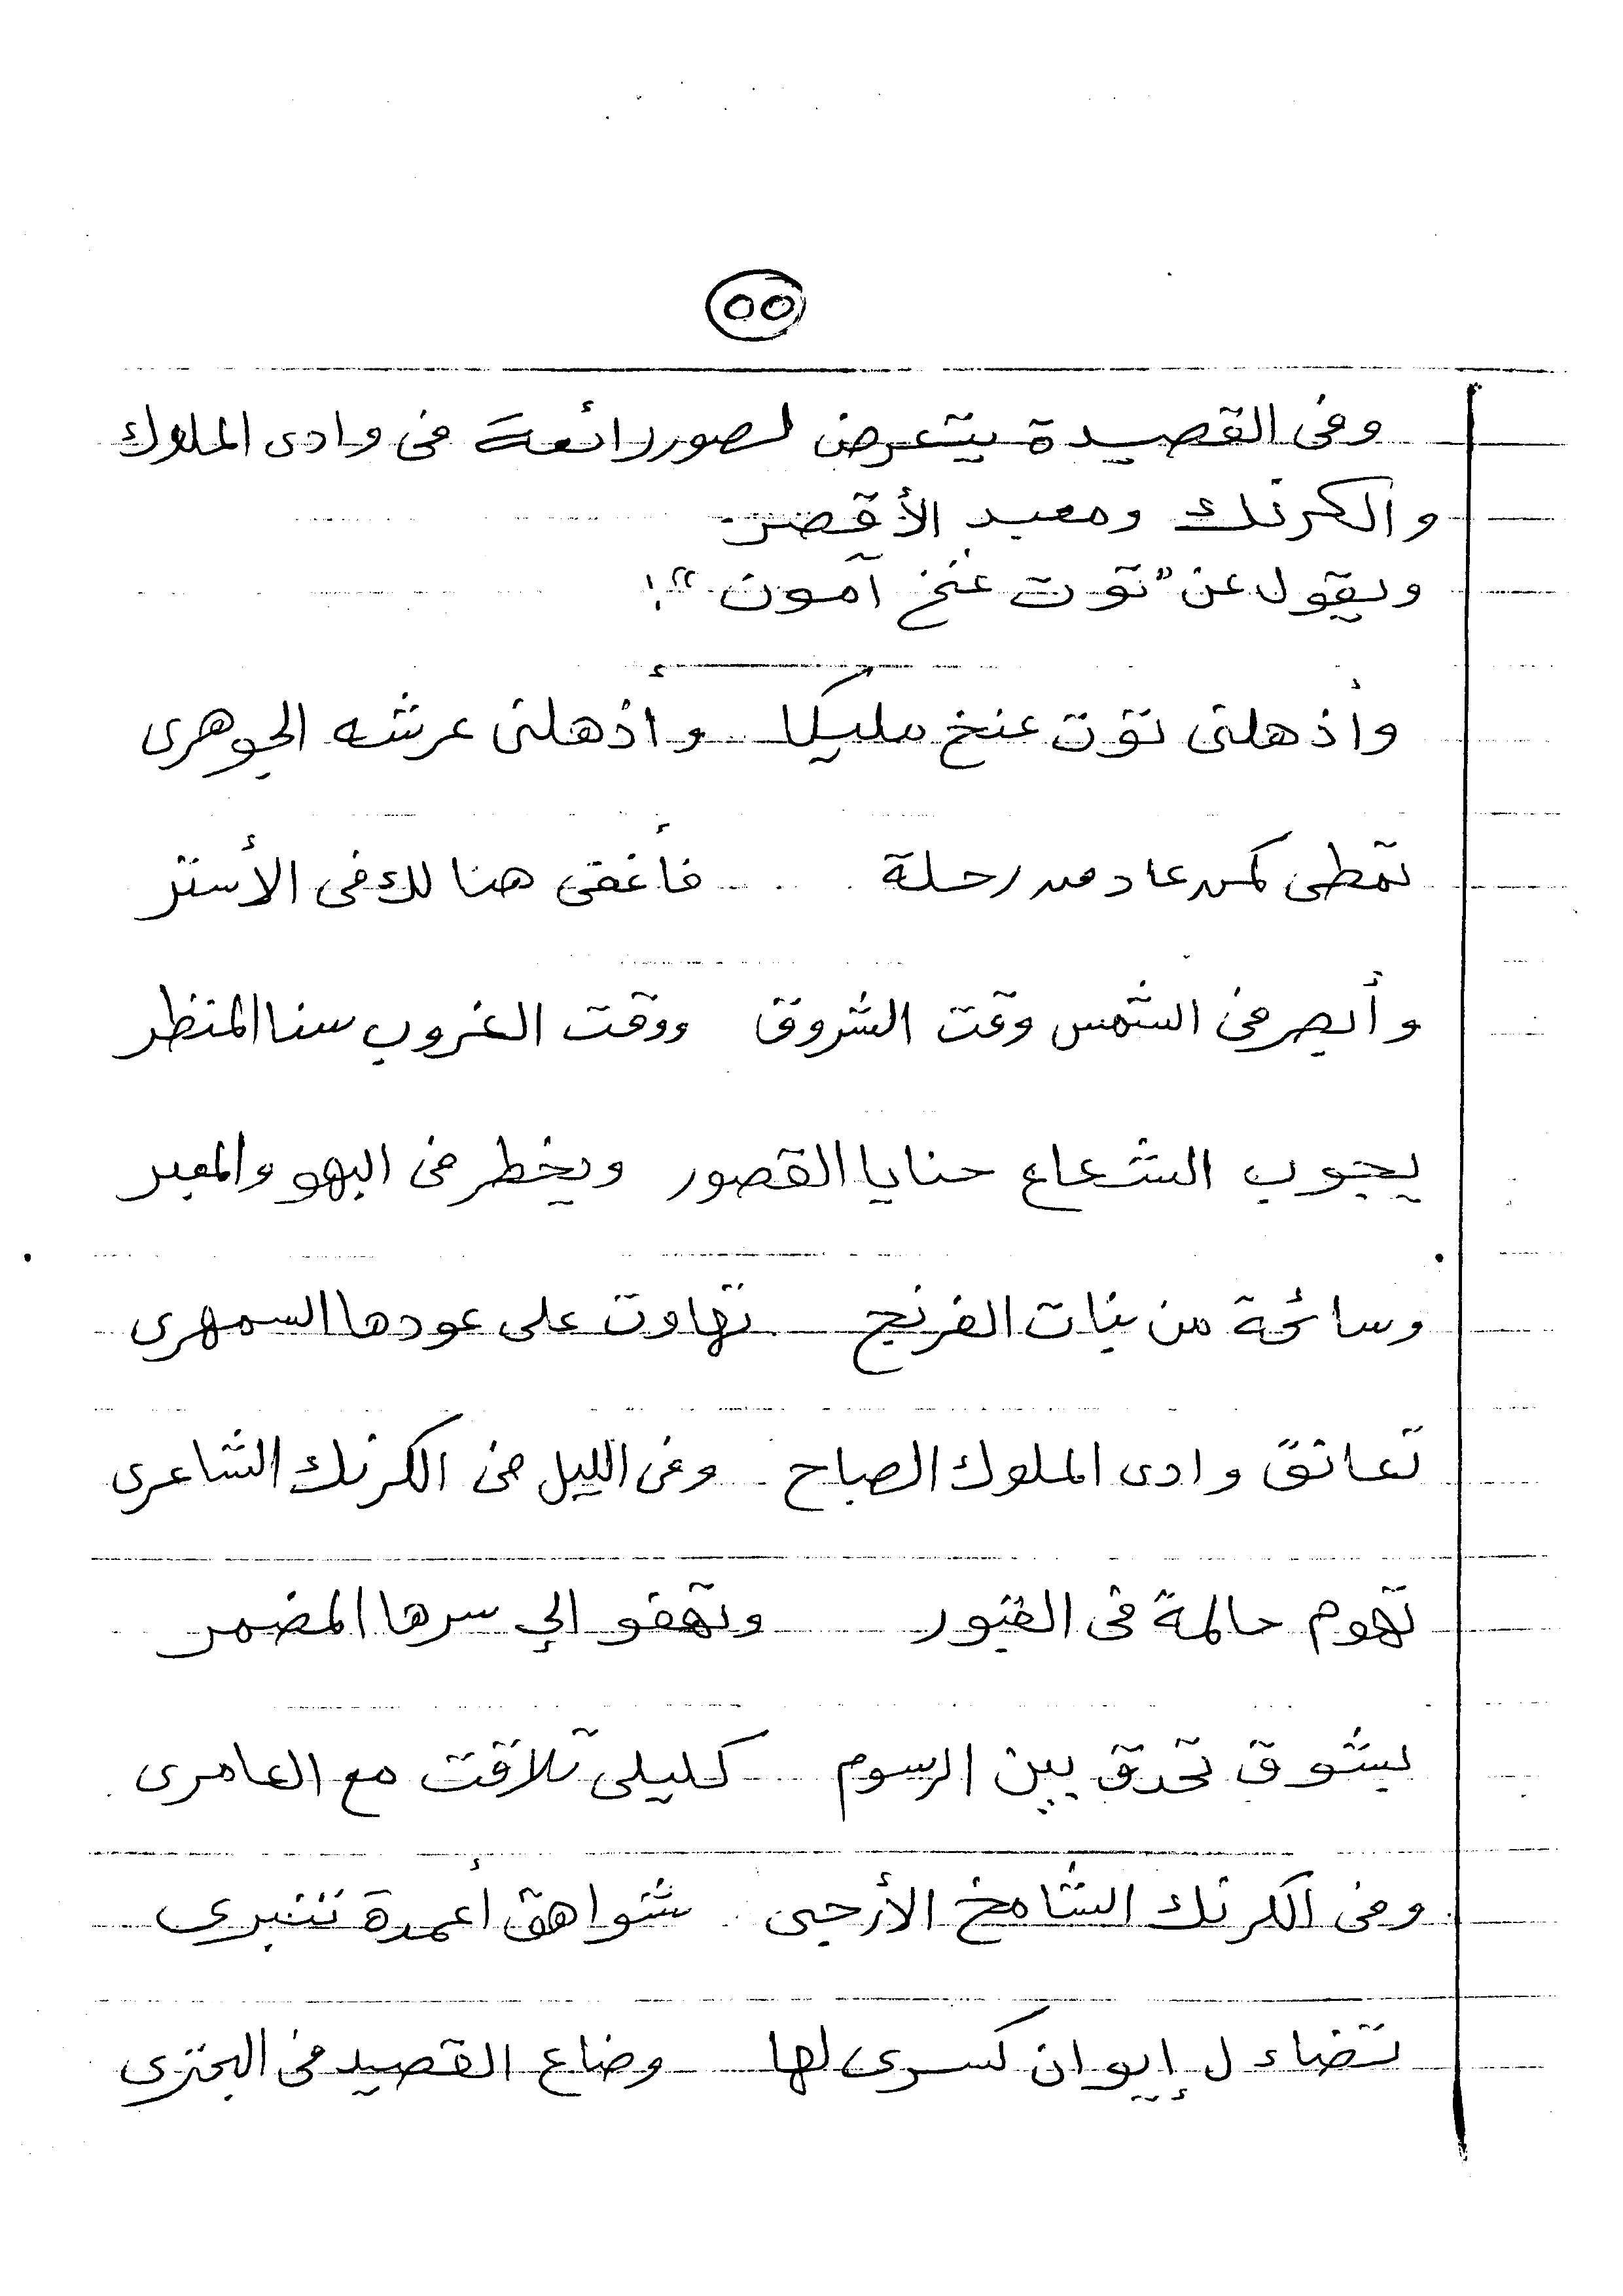 ٥٥
وفى القصيدة يتعرض لصور رائعة فى وادى الملوك
والكرنك ومعبد الأقصر.
ويقول عن "توت عنخ آمون":
وأذهلنى توت عنخ مليكا وأذهلنى عرشه الجوهرى
تمطى كمن عاد من رحلة فأغفى هنالك فى الأستر
وأبصر فى الشمس وقت الشروق ووقت الغروب سنا المنظر
يجوب الشعاع حنايا القصور ويخطر فى البهو والمعبر
وسائحة من بنات الفرنج تهاوت على عودها السمهرى
تعانق وادى الملوك الصباح وفى الليل فى الكرنك الشاعرى
تهوم حالمة فى القبور وتهفو إلى سرها المضمر
بشوق تحدق بين الرسوم كليلى تلاقت مع العامرى
وفى الكرنك الشامخ الأرحبى شواهق أعمدة تنبرى
تضاءل إيوان كسرى لها وضاع القصيد فى البحترى